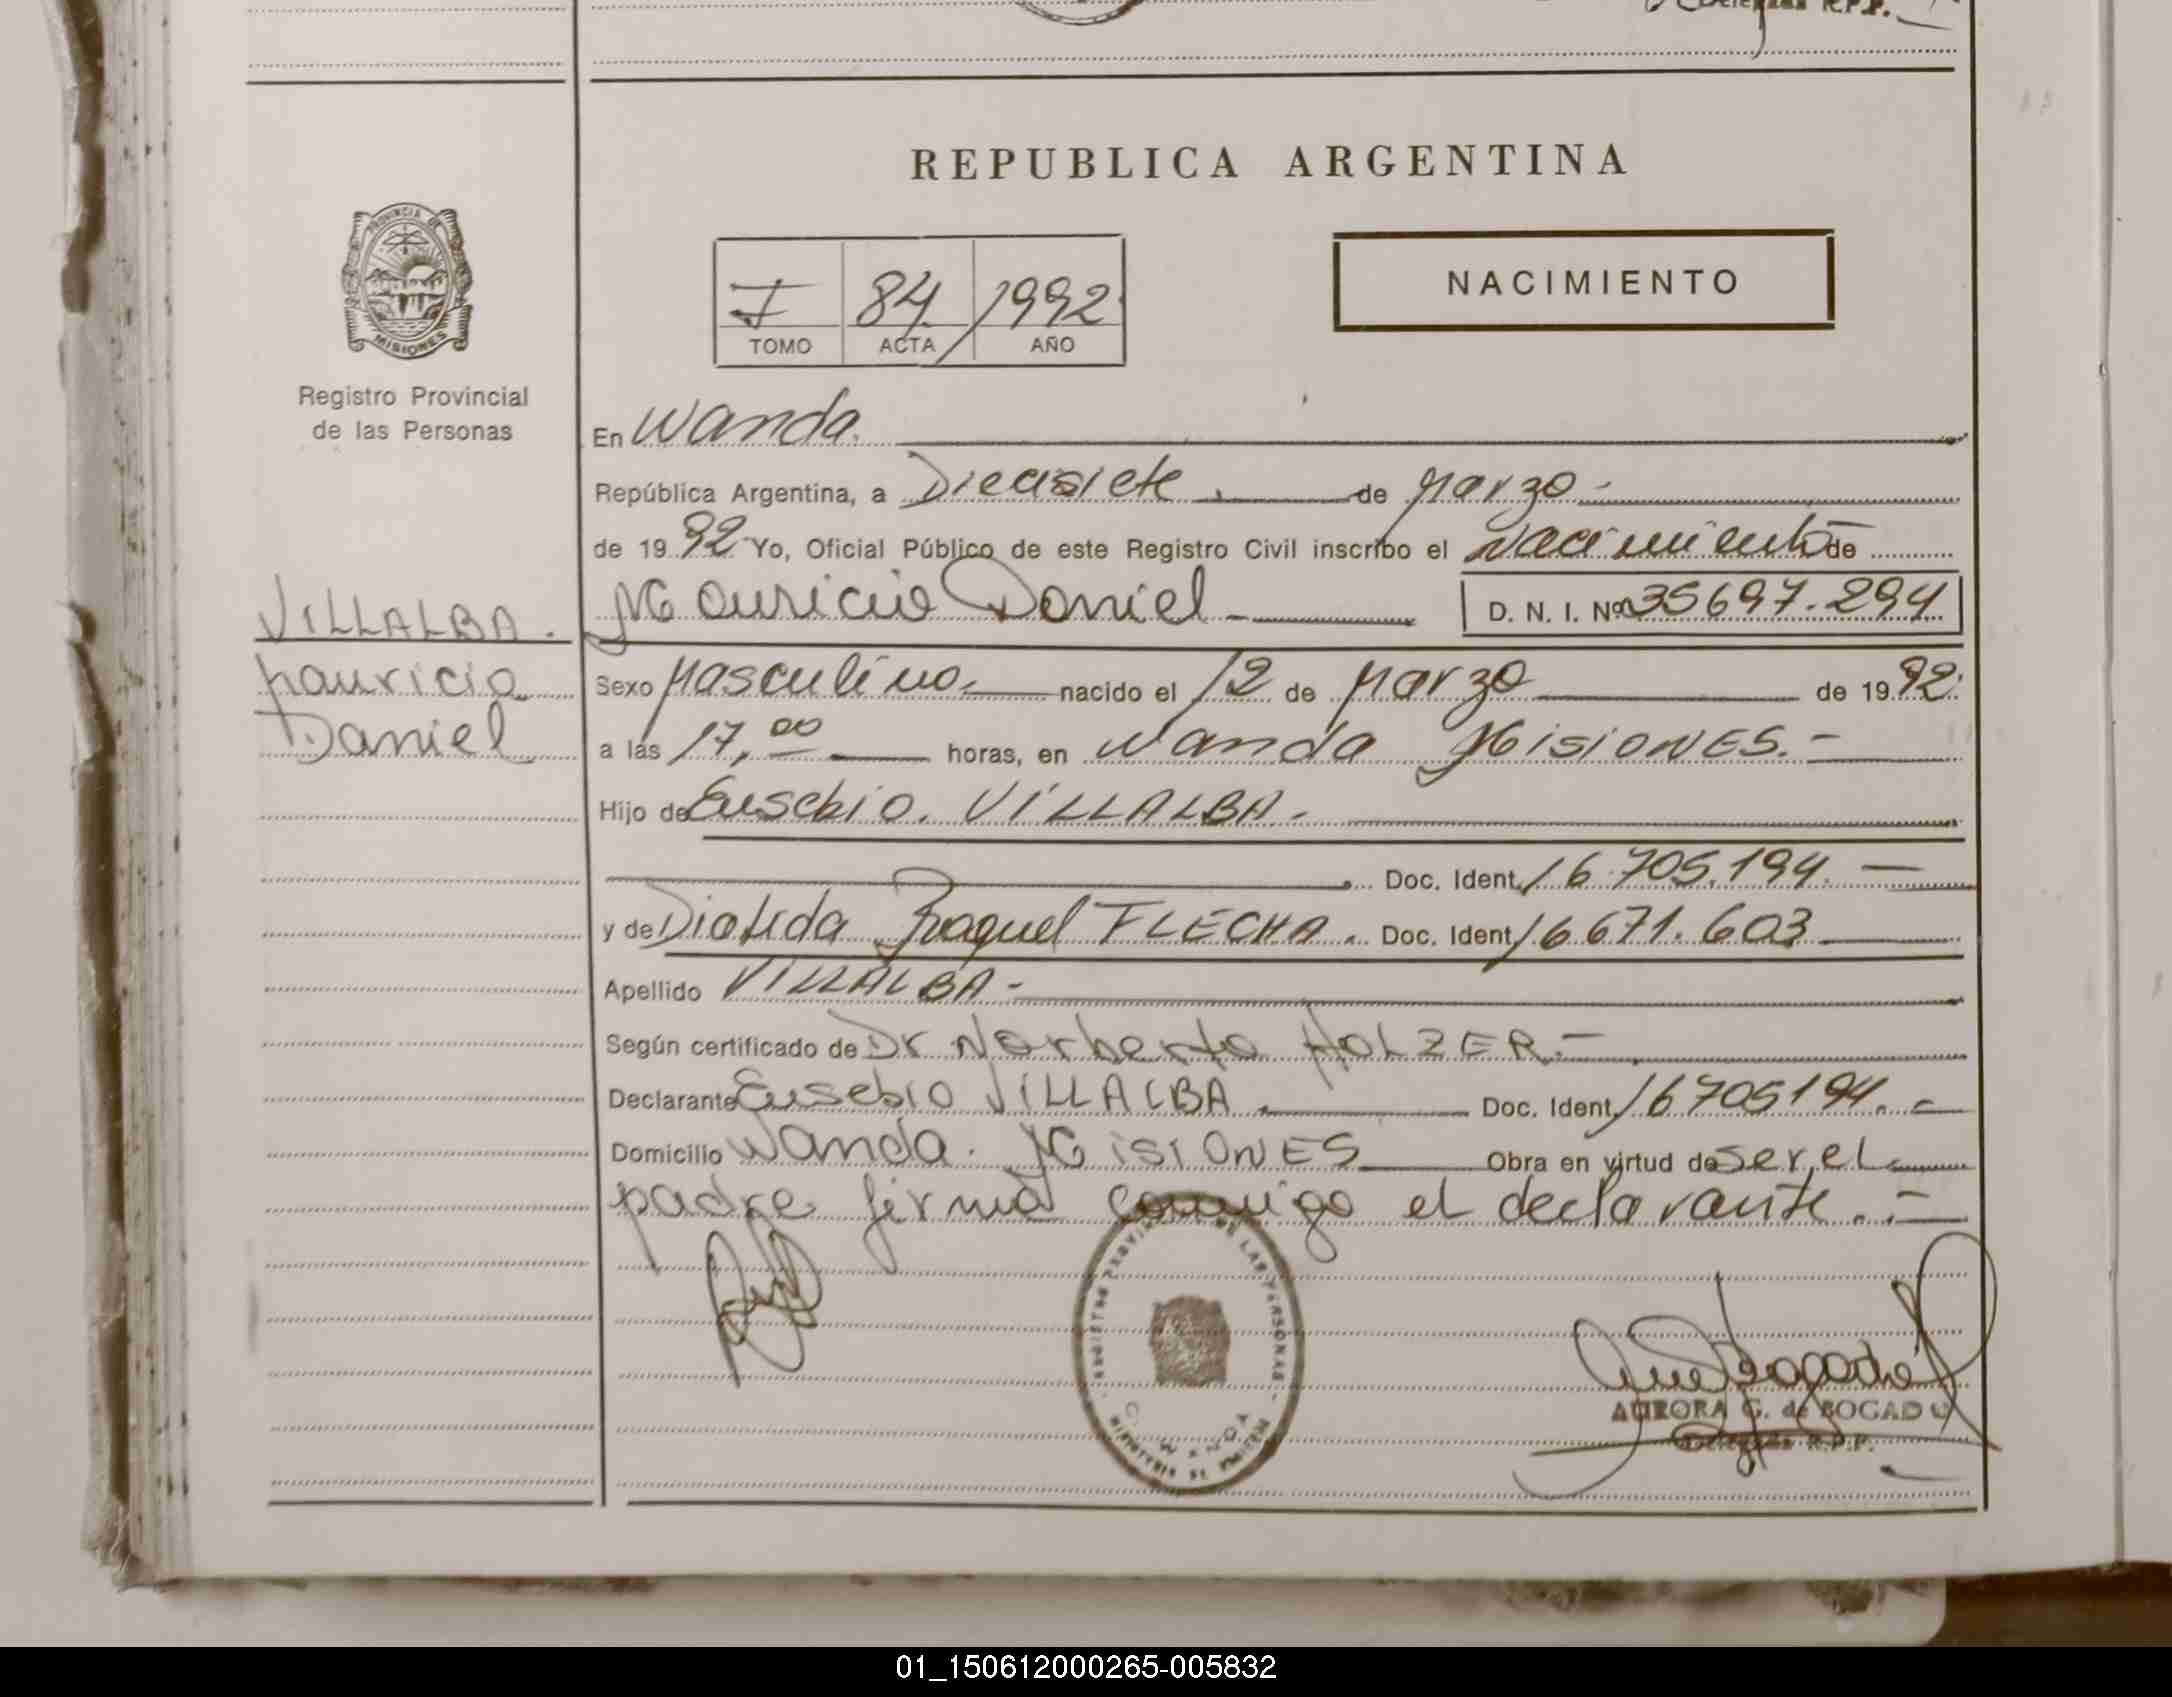 Delegada R.P.P.
REPUBLICA ARGENTINA
PROVINCIA DE
MISIONES
I 84 / 1992
TOMO ACTA AÑO
NACIMIENTO
Registro Provincial
de las Personas
En Wanda.
República Argentina, a Diecisiete de Marzo
de 1992 Yo, Oficial Público de este Registro Civil inscribo el Nacimiento de
VILLALBA.
Mauricio Daniel D. N. I. Nº 35697.294
Mauricio
Daniel
Sexo Masculino. nacido el 12 de Marzo de 1992.
a las 17,00 horas, en Wanda MisiONES.-
Hijo de Eusebio. VILLALBA.
Doc. Ident. 16.705.194.
y de Raquel FLECHA. Doc. Ident. 16.671.603
Apellido VILLALBA-
Según certificado de Dr Norberto HOLZER.-
Declarante Eusebio VILLALBA. Doc. Ident. 16705194.-
Domicilio Wanda. MISIONES Obra en virtud de ser el
padre firma conmigo el declarante.-
REGISTRO PROVINCIAL DE LAS PERSONAS
MINISTERIO DE
WANDA
AURORA G. de BOGADO
Delegada R.P.P.
01_150612000265-005832